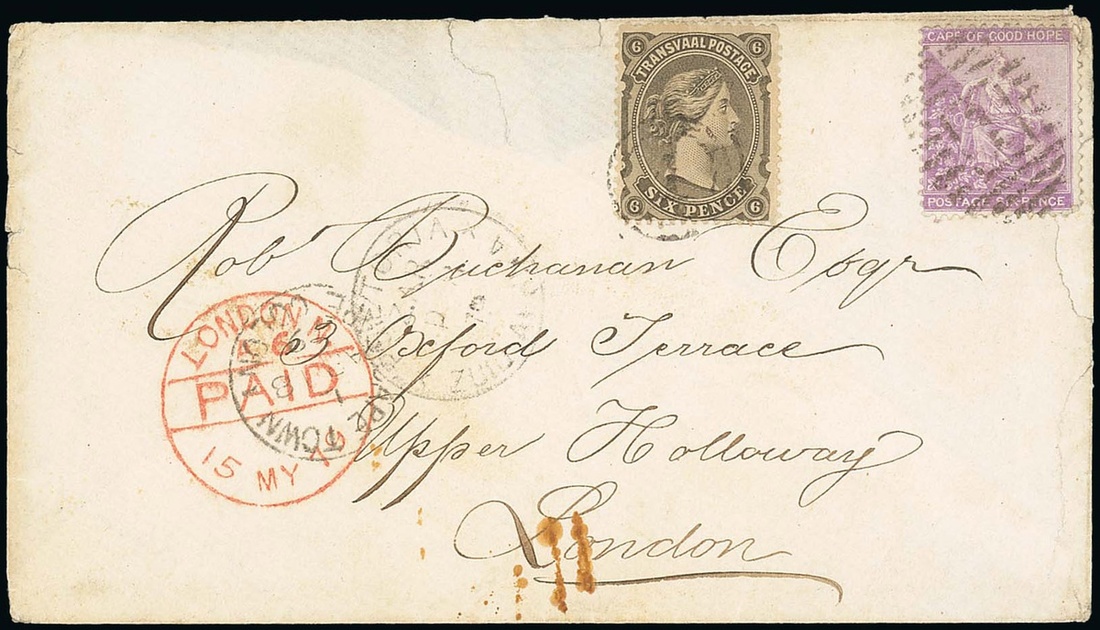 6 TRANSVAAL POSTAGE 6
6 SIX PENCE 6
CAPE OF GOOD HOPE
POSTAGE SIX PENCE
Robt Buchanan Esqr
63 Oxford Terrace
Upper Holloway
London
LONDON N
PAID
15 MY
TOWN